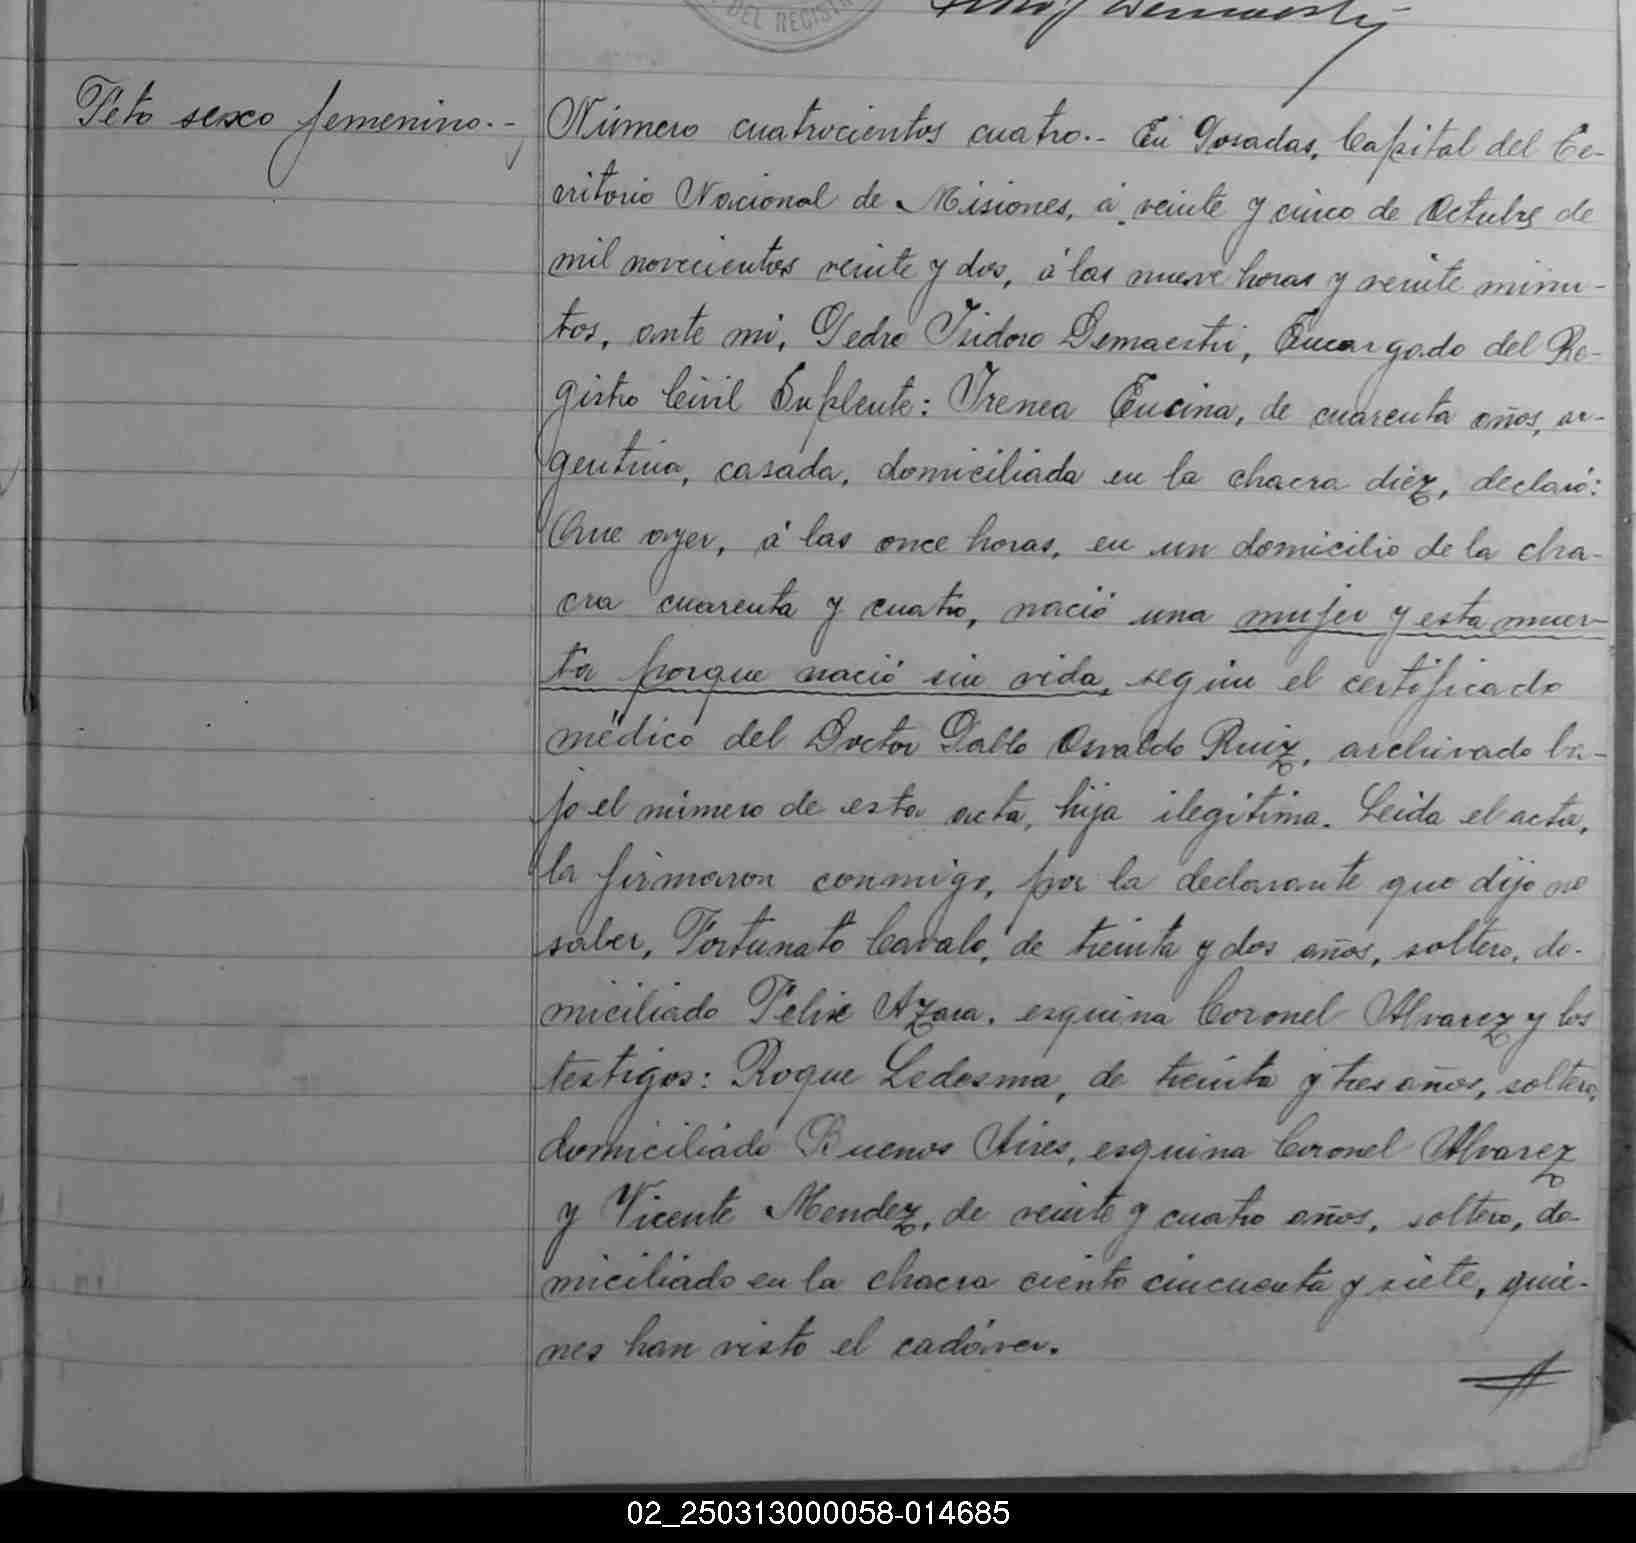 DEL REGISTR
Feto sexo femenino.-
Número cuatrocientos cuatro.- En Posadas, Capital del Te-
rritorio Nacional de Misiones, á veinte y cinco de Octubre de
mil novecientos veinte y dos, á las nueve horas y veinte minu-
tos, ante mi, Pedro Isidoro Demaestri, Encargado del Re-
gistro Civil Suplente: Irenea Encina, de cuarenta años, ar-
gentina, casada, domiciliada en la chacra diéz, declaró:
Que ayer, á las once horas, en un domicilio de la cha-
cra cuarenta y cuatro, nació una mujer y esta muer-
ta porque nació sin vida, según el certificado
médico del Doctor Pablo Osvaldo Ruiz, archivado ba-
jo el número de esta acta, hija ilegítima. Leida el acta,
la firmaron conmigo, por la declarante que dijo no
saber, Fortunato Cavalo, de treinta y dos años, soltero, do-
miciliado Felix Azara, esquina Coronel Alvarez y los
testigos: Roque Ledesma, de treinta y tres años, soltero,
domiciliado Buenos Aires, esquina Coronel Alvarez
y Vicente Mendez, de veinte y cuatro años, soltero, do-
miciliado en la chacra ciento cincuenta y siete, quie-
nes han visto el cadáver.
02_250313000058-014685